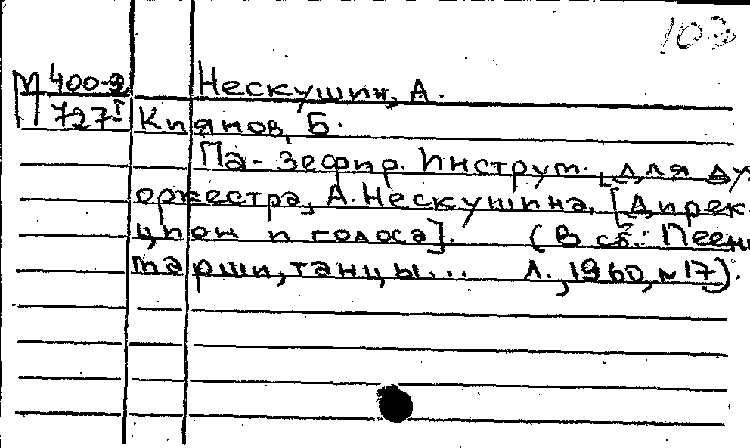 103
М 400-2 Нескушин, А.
727I Киянов, Б.
Па-зефир. Инструт. [для ду
оркестра, А. Нескушина, [Дирек-
цион и голоса]. (В сб.: Песни
марши, танцы... Л., 1960, №17).